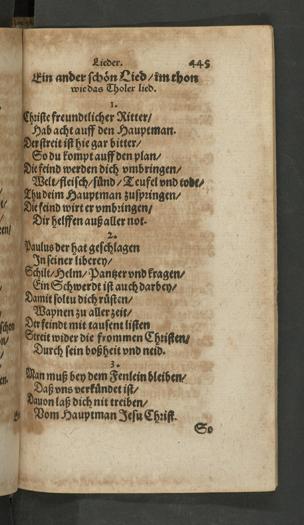 Lieder. 445
Ein ander schön Lied/ im thon
wie das Tholer lied.
1.
Christe freundtlicher Ritter/
Hab acht auff den Hauptman.
Der streit ist hie gar bitter/
So du kompt auff den plan/
Die feind werden dich vmbringen/
Welt/ fleisch/ sünd/ Teufel vnd todt/
Thu deim Hauptman zuspringen/
Die feind wirt er vmbringen/
Dir helffen auß aller not.
2.
Paulus der hat geschlagen
In seiner liberey/
Schilt/ Helm/ Pantzer vnd kragen/
Ein Schwerdt ist auch darbey/
Damit soltu dich rüsten/
Wapnen zu aller zeit/
Der feindt mit tausent listen
Streit wider die frommen Christen/
Durch sein boßheit vnd neid.
3.
Man muß bey dem Fenlein bleiben/
Daß vns verkündet ist/
Dauon laß dich nit treiben/
Vom Hauptman Jesu Christ.
So